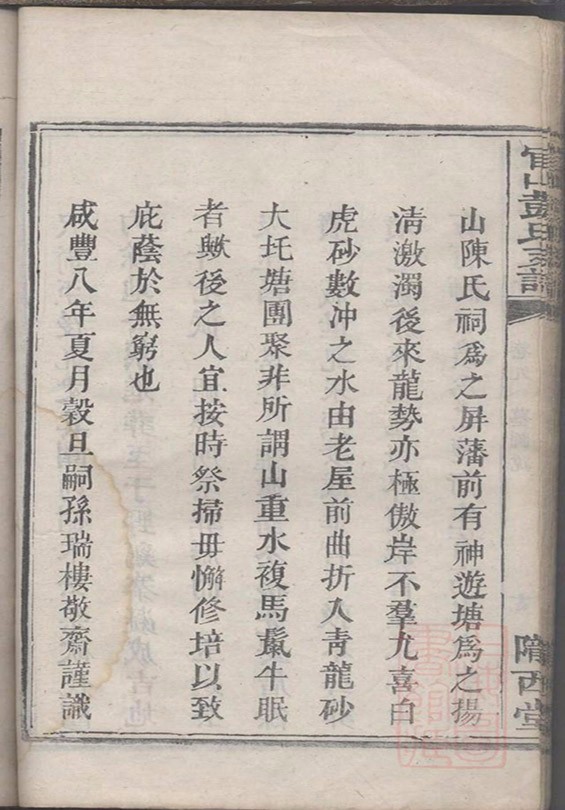 官山彭氏宗譜
隴西堂
山陳氏祠爲之屏藩前有神遊塘爲之揚
清激濁後來龍勢亦極傲岸不羣尤喜白
虎砂數冲之水由老屋前曲折入青龍砂
大圫塘團聚非所謂山重水複馬鬛牛眠
者歟後之人宜按時祭掃毋懈修培以致
庇蔭於無窮也
咸豐八年夏月穀旦嗣孫瑞樓敬齋謹識